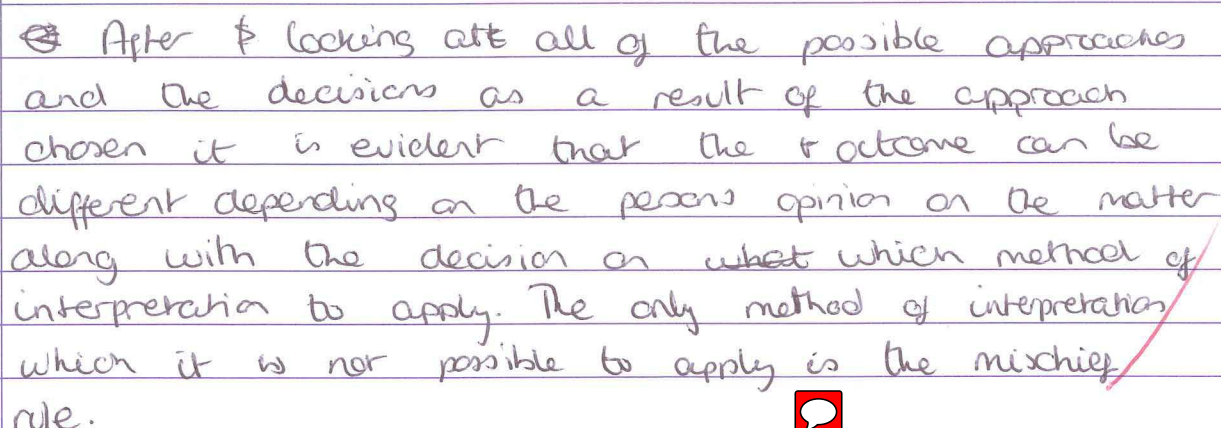 After looking att all of the possible approaches
and the decisions as a result of the approach
chosen it is evident that the outcome can be
different depending on the persons opinion on the matter
along with the decision on what which method of
interpretation to apply. The only method of interpretation
which it is not possible to apply is the mischief
rule.